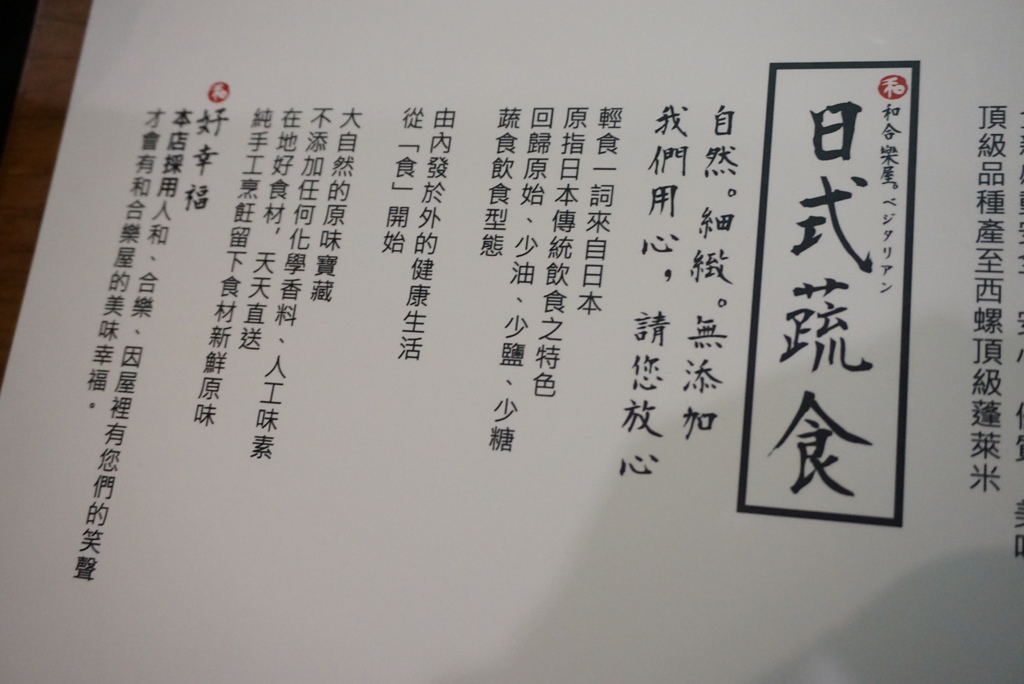 頂級品種產至西螺頂級蓬萊米
和 和合樂屋。ベジタリアン
日式蔬食
自然。細緻。無添加
我們用心，請您放心
輕食一詞來自日本
原指日本傳統飲食之特色
回歸原始、少油、少鹽、少糖
蔬食飲食型態
由內發於外的健康生活
從「食」開始
大自然的原味寶藏
不添加任何化學香料、人工味素
在地好食材，天天直送
純手工烹飪留下食材新鮮原味
和 好幸福
本店採用人和、合樂、因屋裡有您們的笑聲
才會有和合樂屋的美味幸福。